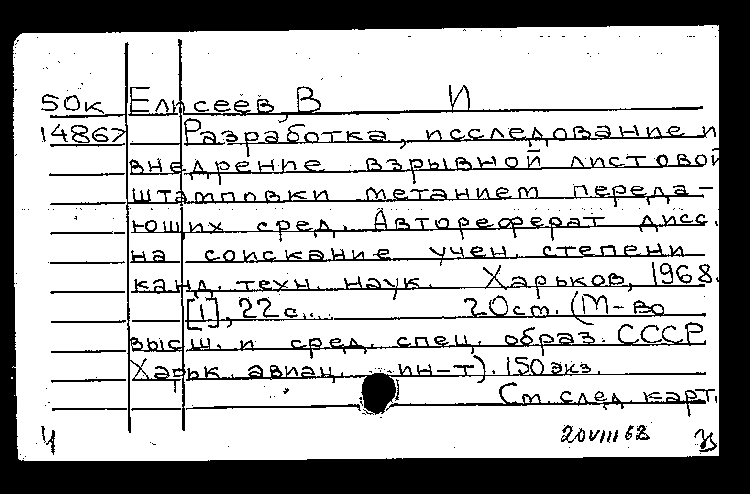 50к Елисеев, В И
14867 Разработка, исследование и
внедрение взрывной листовой
штамповки метанием переда-
ющих сред. Автореферат дисс.
на соискание учен. степени
канд. техн. наук. Харьков, 1968.
[1], 22 с. .. 20см. (М-во
высш. и сред. спец. образ. СССР
Харьк. авиац. ин-т). 150 экз.
См. след. карт.
Ч 20 VIII 68